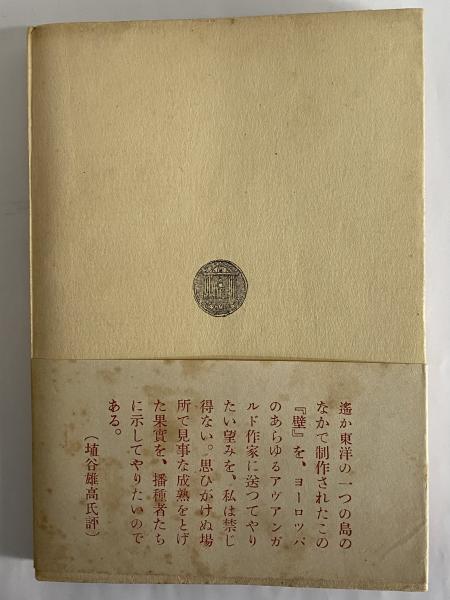 遙か東洋の一つの島の
なかで制作されたこの
『壁』を、ヨーロッパ
のあらゆるアヴァンガ
ルド作家に送つてやり
たい望みを、私は禁じ
得ない。思ひがけぬ場
所で見事な成熟をとげ
た果実を、播種者たち
に示してやりたいので
ある。
（埴谷雄高氏評）